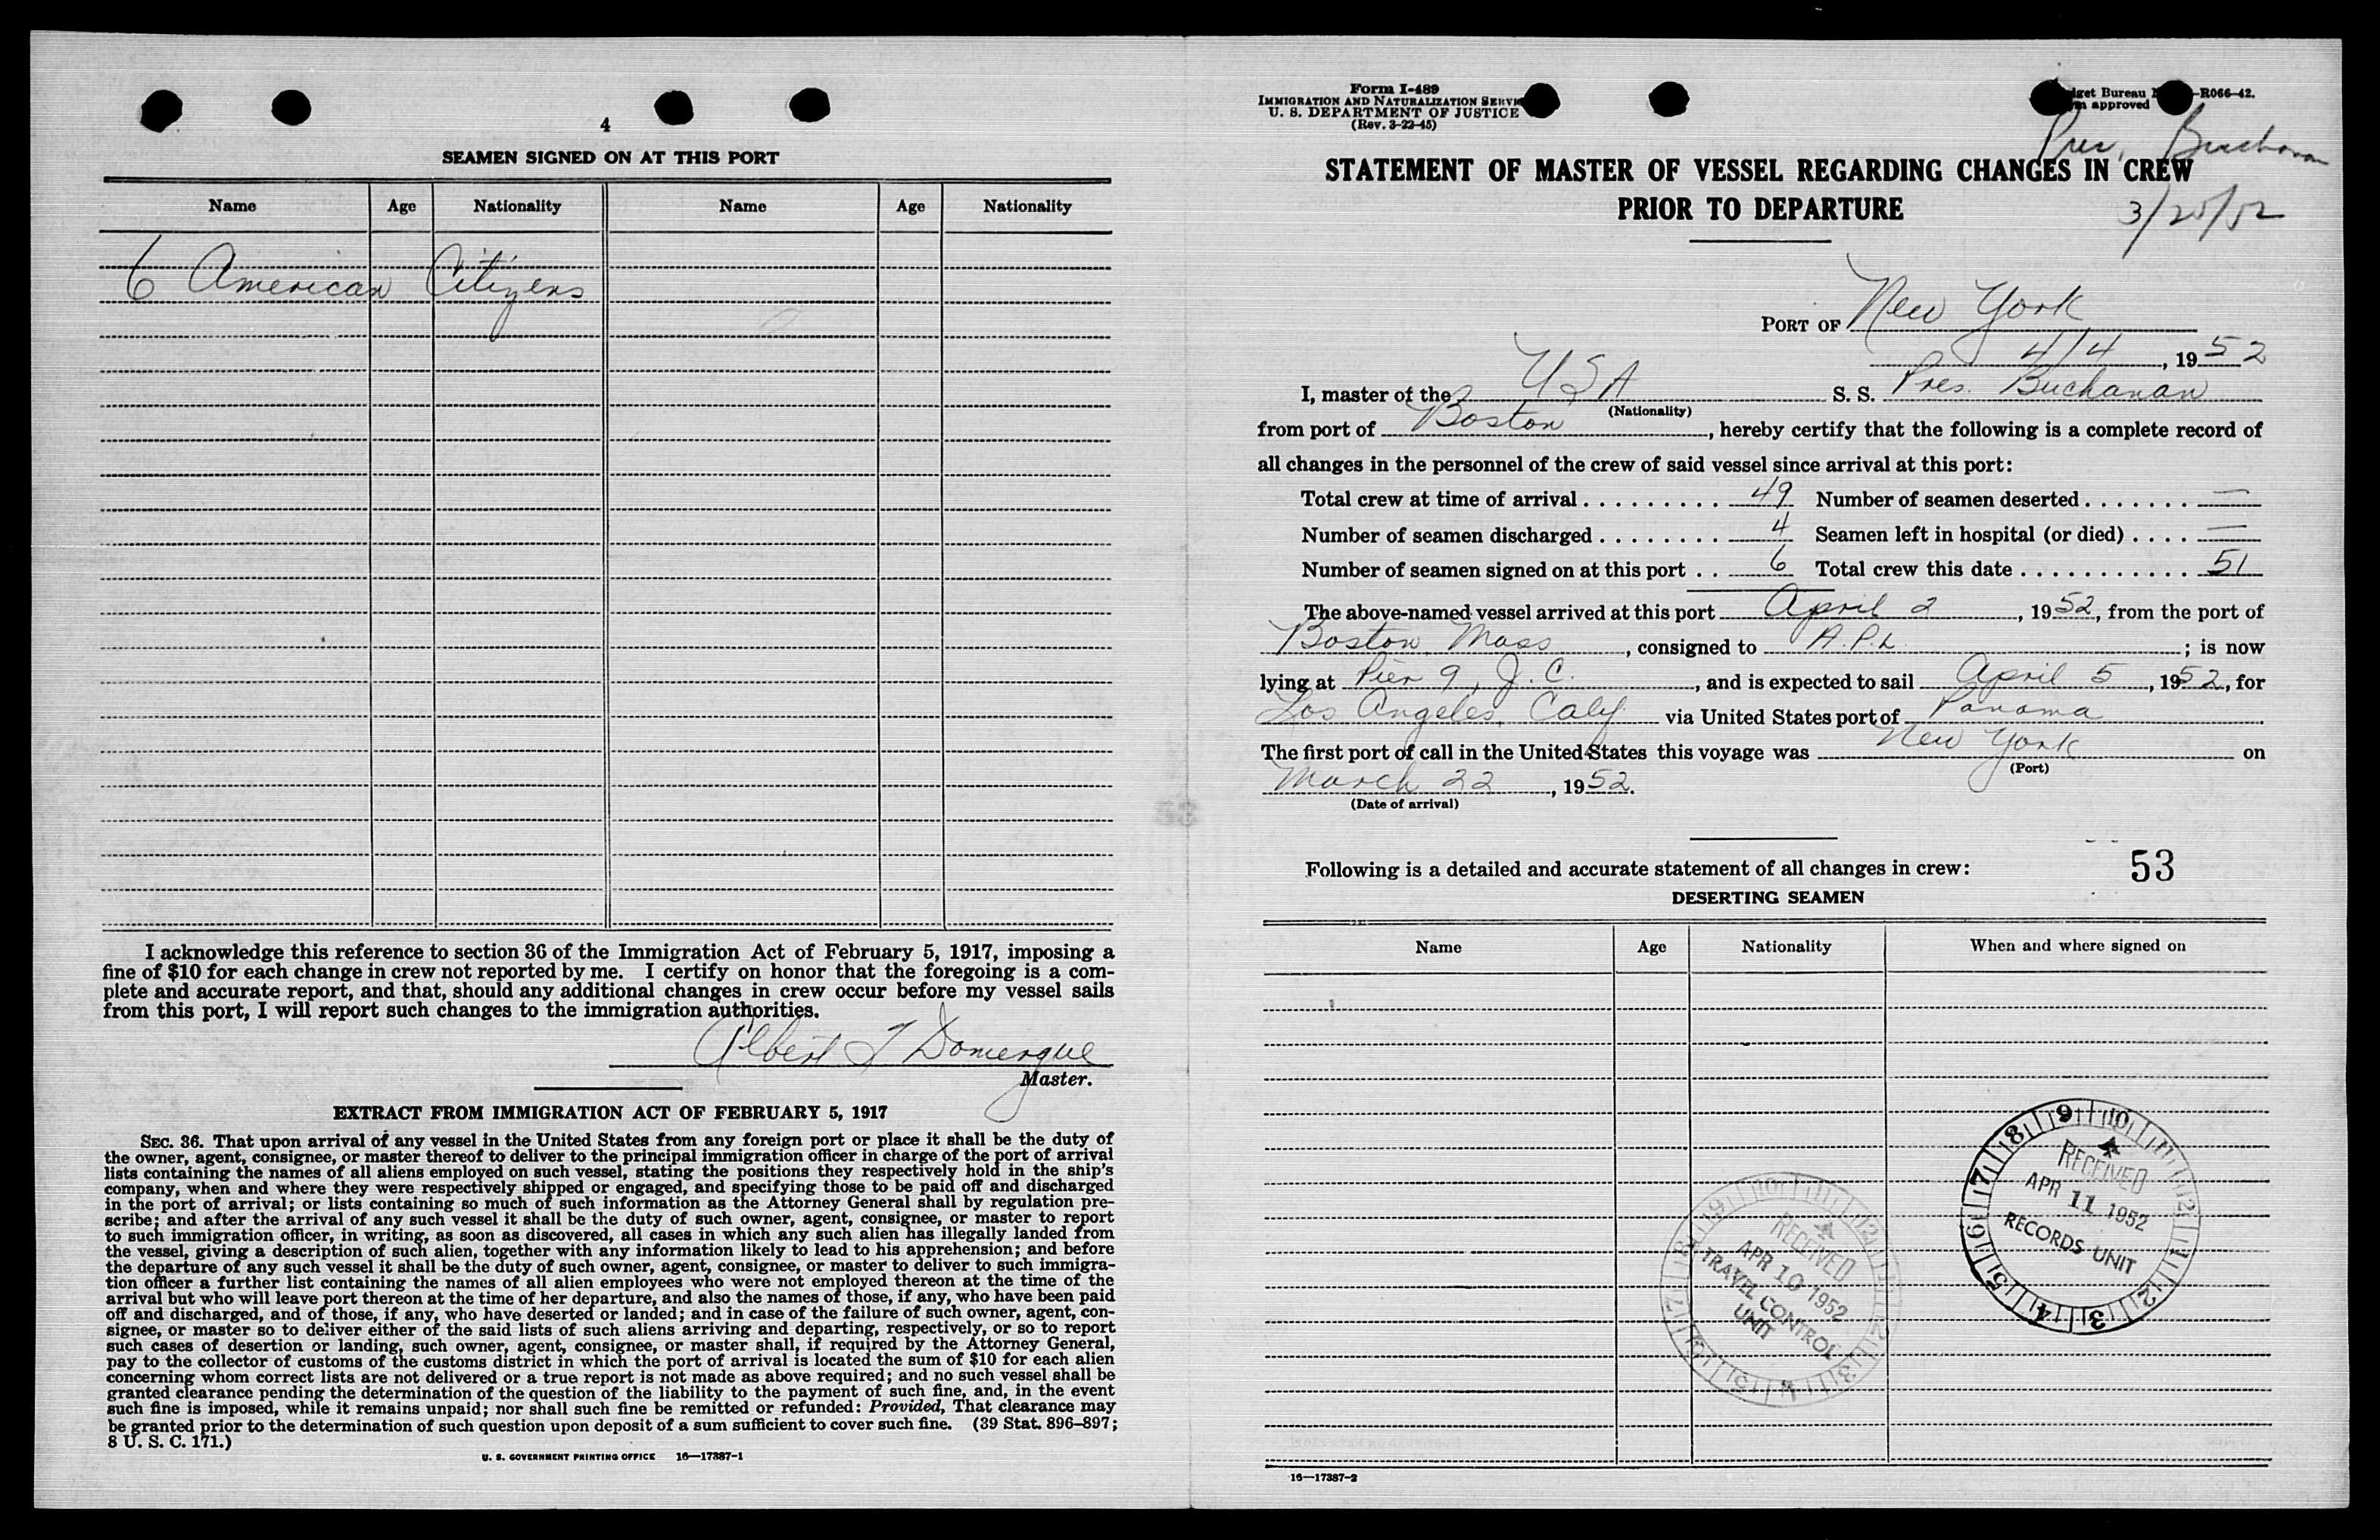 4
SEAMEN SIGNED ON AT THIS PORT
Name Age Nationality Name Age Nationality
6 American Citizens
I acknowledge this reference to section 36 of the Immigration Act of February 5, 1917, imposing a
fine of $10 for each change in crew not reported by me. I certify on honor that the foregoing is a com-
plete and accurate report, and that, should any additional changes in crew occur before my vessel sails
from this port, I will report such changes to the immigration authorities.
Albert J Domergue
Master.
EXTRACT FROM IMMIGRATION ACT OF FEBRUARY 5, 1917
SEC. 36. That upon arrival of any vessel in the United States from any foreign port or place it shall be the duty of
the owner, agent, consignee, or master thereof to deliver to the principal immigration officer in charge of the port of arrival
lists containing the names of all aliens employed on such vessel, stating the positions they respectively hold in the ship's
company, when and where they were respectively shipped or engaged, and specifying those to be paid off and discharged
in the port of arrival; or lists containing so much of such information as the Attorney General shall by regulation pre-
scribe; and after the arrival of any such vessel it shall be the duty of such owner, agent, consignee, or master to report
to such immigration officer, in writing, as soon as discovered, all cases in which any such alien has illegally landed from
the vessel, giving a description of such alien, together with any information likely to lead to his apprehension; and before
the departure of any such vessel it shall be the duty of such owner, agent, consignee, or master to deliver to such immigra-
tion officer a further list containing the names of all alien employees who were not employed thereon at the time of the
arrival but who will leave port thereon at the time of her departure, and also the names of those, if any, who have been paid
off and discharged, and of those, if any, who have deserted or landed; and in case of the failure of such owner, agent, con-
signee, or master so to deliver either of the said lists of such aliens arriving and departing, respectively, or so to report
such cases of desertion or landing, such owner, agent, consignee, or master shall, if required by the Attorney General,
pay to the collector of customs of the customs district in which the port of arrival is located the sum of $10 for each alien
concerning whom correct lists are not delivered or a true report is not made as above required; and no such vessel shall be
granted clearance pending the determination of the question of the liability to the payment of such fine, and, in the event
such fine is imposed, while it remains unpaid; nor shall such fine be remitted or refunded: Provided, That clearance may
be granted prior to the determination of such question upon deposit of a sum sufficient to cover such fine. (39 Stat. 896–897;
8 U. S. C. 171.)
U. S. GOVERNMENT PRINTING OFFICE 16—17387-1
Form I-489
IMMIGRATION AND NATURALIZATION
U. S. DEPARTMENT OF JUSTICE
(Rev. 3-22-45)
Bureau R066-42.
approved
Pres. Buchanan
STATEMENT OF MASTER OF VESSEL REGARDING CHANGES IN CREW
PRIOR TO DEPARTURE
3/25/52
PORT OF New York
4/4, 1952
I, master of the USA S. S. Pres. Buchanan
(Nationality)
from port of Boston, hereby certify that the following is a complete record of
all changes in the personnel of the crew of said vessel since arrival at this port:
Total crew at time of arrival . . . . . . . . . 49 Number of seamen deserted . . . . . . . —
Number of seamen discharged . . . . . . . . 4 Seamen left in hospital (or died) . . . . —
Number of seamen signed on at this port . . 6 Total crew this date . . . . . . . . . . . 51
The above-named vessel arrived at this port April 2, 1952, from the port of
Boston, Mass, consigned to A.P.L.; is now
lying at Pier 9, J.C., and is expected to sail April 5, 1952, for
Los Angeles, Calif via United States port of Panama
The first port of call in the United States this voyage was New York on
(Port)
March 22, 1952.
(Date of arrival)
Following is a detailed and accurate statement of all changes in crew: 53
DESERTING SEAMEN
Name Age Nationality When and where signed on
RECEIVED
APR 11 1952
RECORDS UNIT
RECEIVED
APR 10 1952
TRAVEL CONTROL
UNIT
16—17387-2